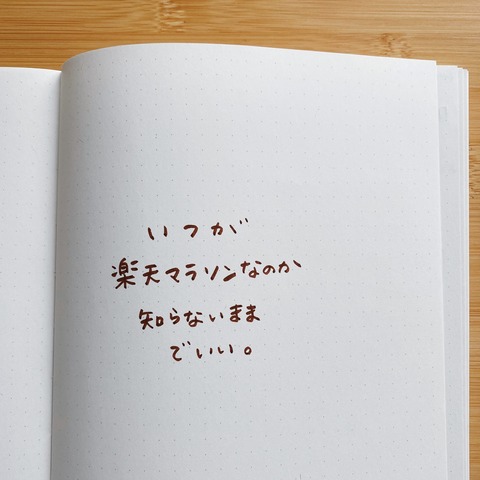 いつが
楽天マラソンなのか
知らないまま
でいい。